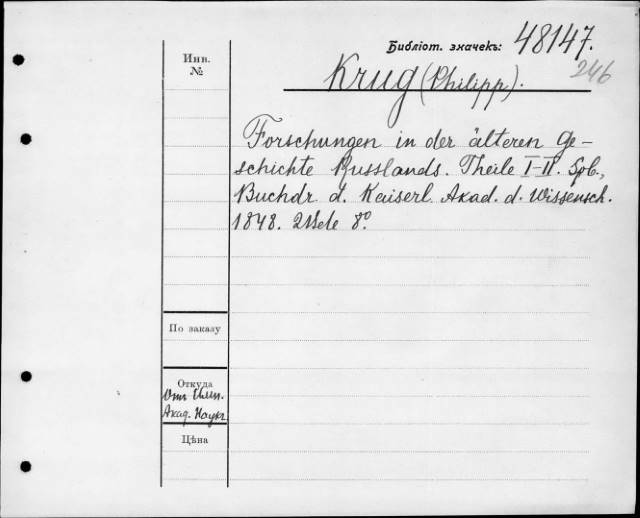 Библіот. значекъ: 48147.
246
Инв.
№
Krug (Philipp).
Forschungen in der älteren Ge-
schichte Russlands. Theile I-II. Spb.,
Buchdr. d. Kaiserl. Akad. d. Wissensch.
1848. 2 Bde 8º.
По заказу
Откуда
Отъ Имп.
Акад. Наукъ
Цѣна